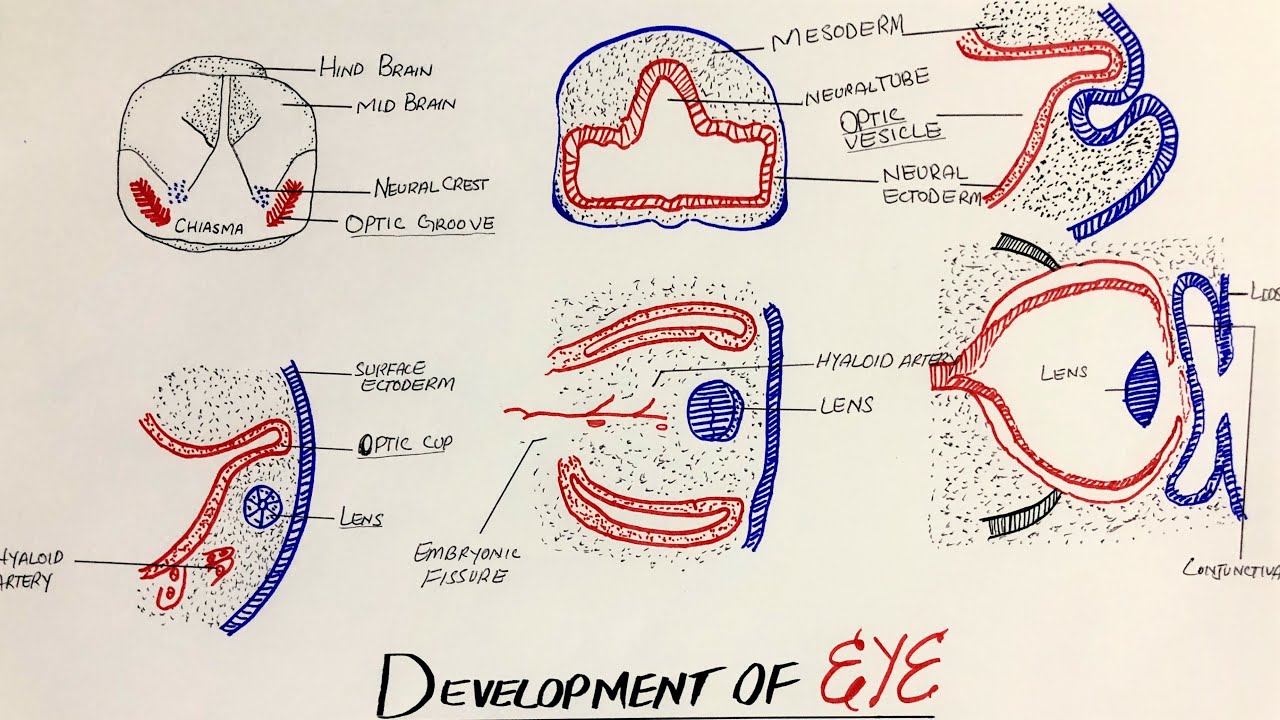 HIND BRAIN
MID BRAIN
NEURAL CREST
OPTIC GROOVE
CHIASMA
MESODERM
NEURAL TUBE
OPTIC
VESICLE
NEURAL
ECTODERM
SURFACE
ECTODERM
OPTIC CUP
LENS
HYALOID
ARTERY
HYALOID ARTERY
LENS
EMBRYONIC
FISSURE
LIDS
LENS
CONJUNCTIVA
DEVELOPMENT OF EYE